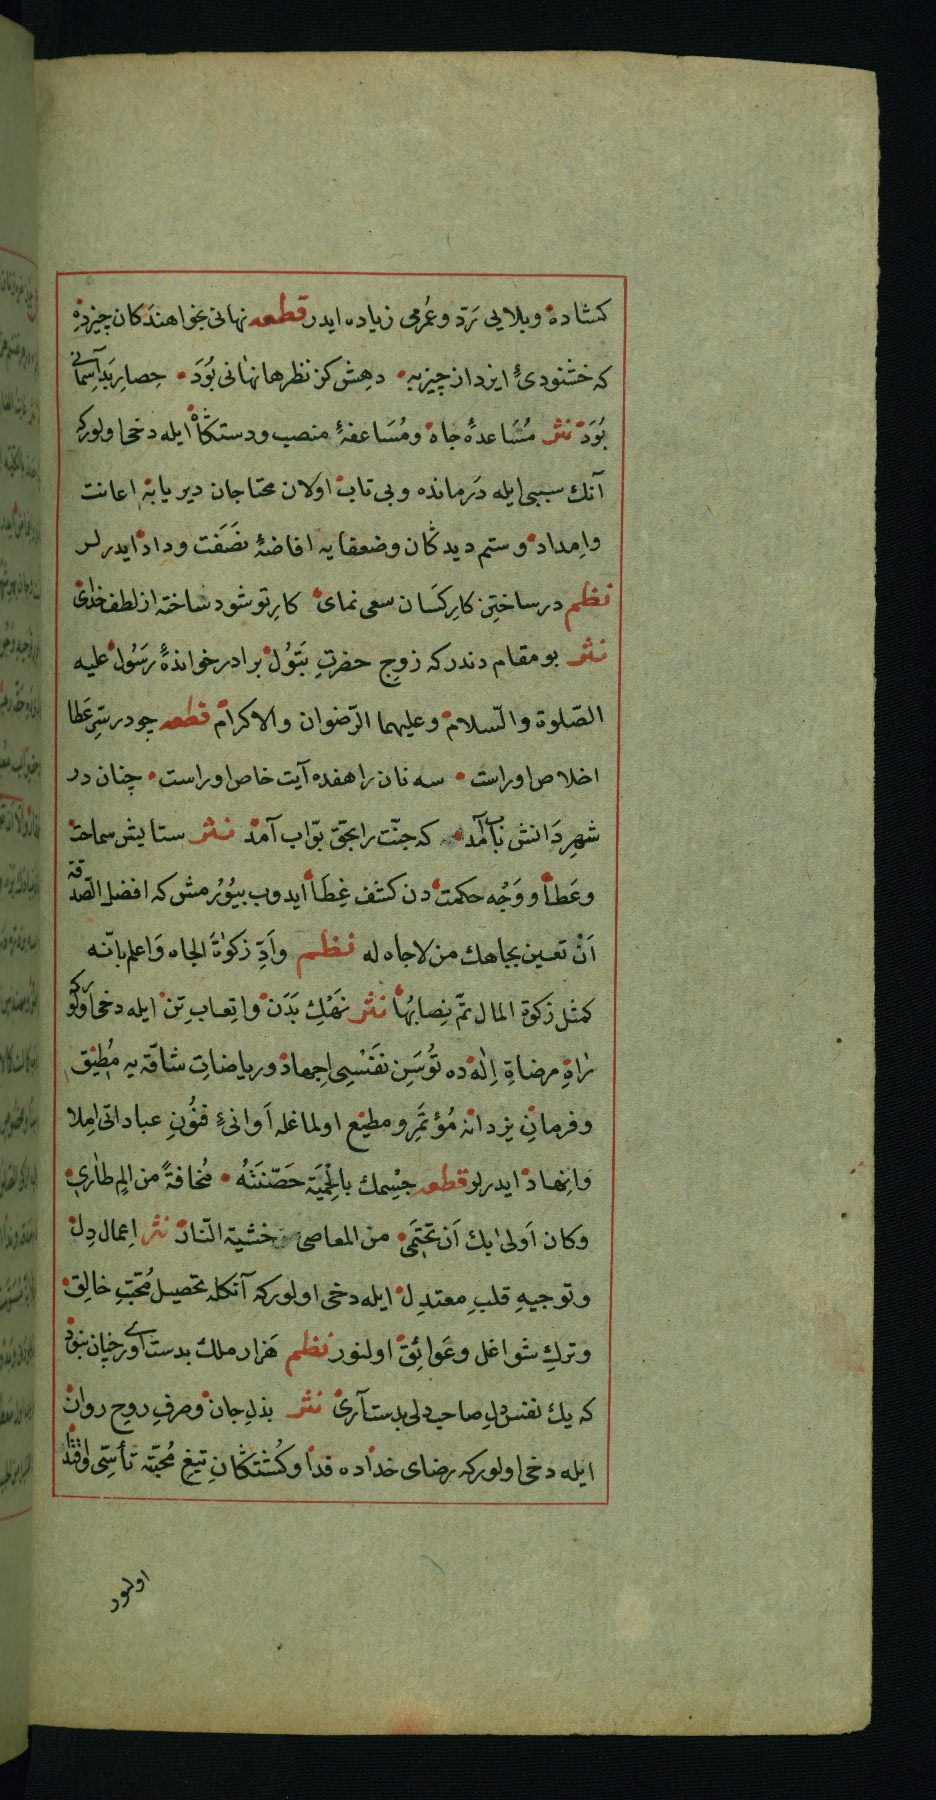 كشاده وبلايى رَدّ وعُمرمى زياده ايدر قطعه نهانى بخواهندكان چيزده
كه خشنودىٔ ايزدان چيز به دهش كز نظرها نهانى بُوَد حِصارِ بَدِ آسمانى
بُوَد نثر مُسَاعدهٔ جاه ومُسَاعفهٔ منصب ودستكاه ايله دخى اولور كه
آنك سببى ايله دَرمانده وبى تاب اولان محتاجان ديريابه اعانت
وامداد وستم ديدكان وضعفايه افاضهٔ نصَفَت وداد ايدرلر
نظم در ساختنِ كارِ كسَان سعى نماى كارِ تو شود ساخته از لطف خداى
نثر بو مقام دندر كه زوجِ حضرتِ بَتَوُل برادر خواندهٔ رَسُول عليه
الصّلوة والسّلام وعليهما الرّضوان والاكرام قطعه چو در سِرِّ عَطا
اخلاص اوراست سه نان را هفده آيت خاص اوراست چنان در
شهرِ دَانش باب آمد كه جنّت را بحق بوّاب آمد نثر ستايش سماحت
وعَطا ووَجُه حكمت دن كشف غِطَا ايدوب بيُوُرمش كه افضل الصّدقة
اَنْ تعين بجاهك من لا جاه له نظم وَاَدِّ زكوٰةَ الجاه وَاعلم بانّه
كمثل زكوة المال تمّ نِصابُها نثر نَهْكِ بَدَن واتِعابِ تن ايله دخى اولور كه
رٰاهِ مرضاةِ اِلٰه ده تُوسَنِ نَفْسى اِجهاد ورياضاتِ شاقّه يه مُطِيق
وفرمانِ يزدانه مُؤتَمِر ومطيع اولماغله اَوانىٔ فنُونِ عباداتى اِملا
وانِهاد ايدرلر قطعه جِسْمك بالحِْمْيَة حَصّنتَهُ مُخافةً من المٍ طارى
وكان اَولى بك اَن تحتَمِى من المعاصى خشية النّار نثر اِعمالِ دِل
وتوجيهِ قلبِ معتدِل ايله دخى اولور كه آنكله تحصيل مُحَبّتِ خالِق
وتركِ شواغل وعَوائِق اولنور نظم هَزار ملك بدست آورى چنان نبود
كه يك نفس دلِ صاحبدلى بدست آرى نثر بذلِ جان وصرفِ روحِ روان
ايله دخى اولور كه رضاى خداده فدا وكُشتكَانِ تيغِ مُحَبّته تأسّى واقتدا
اولنور